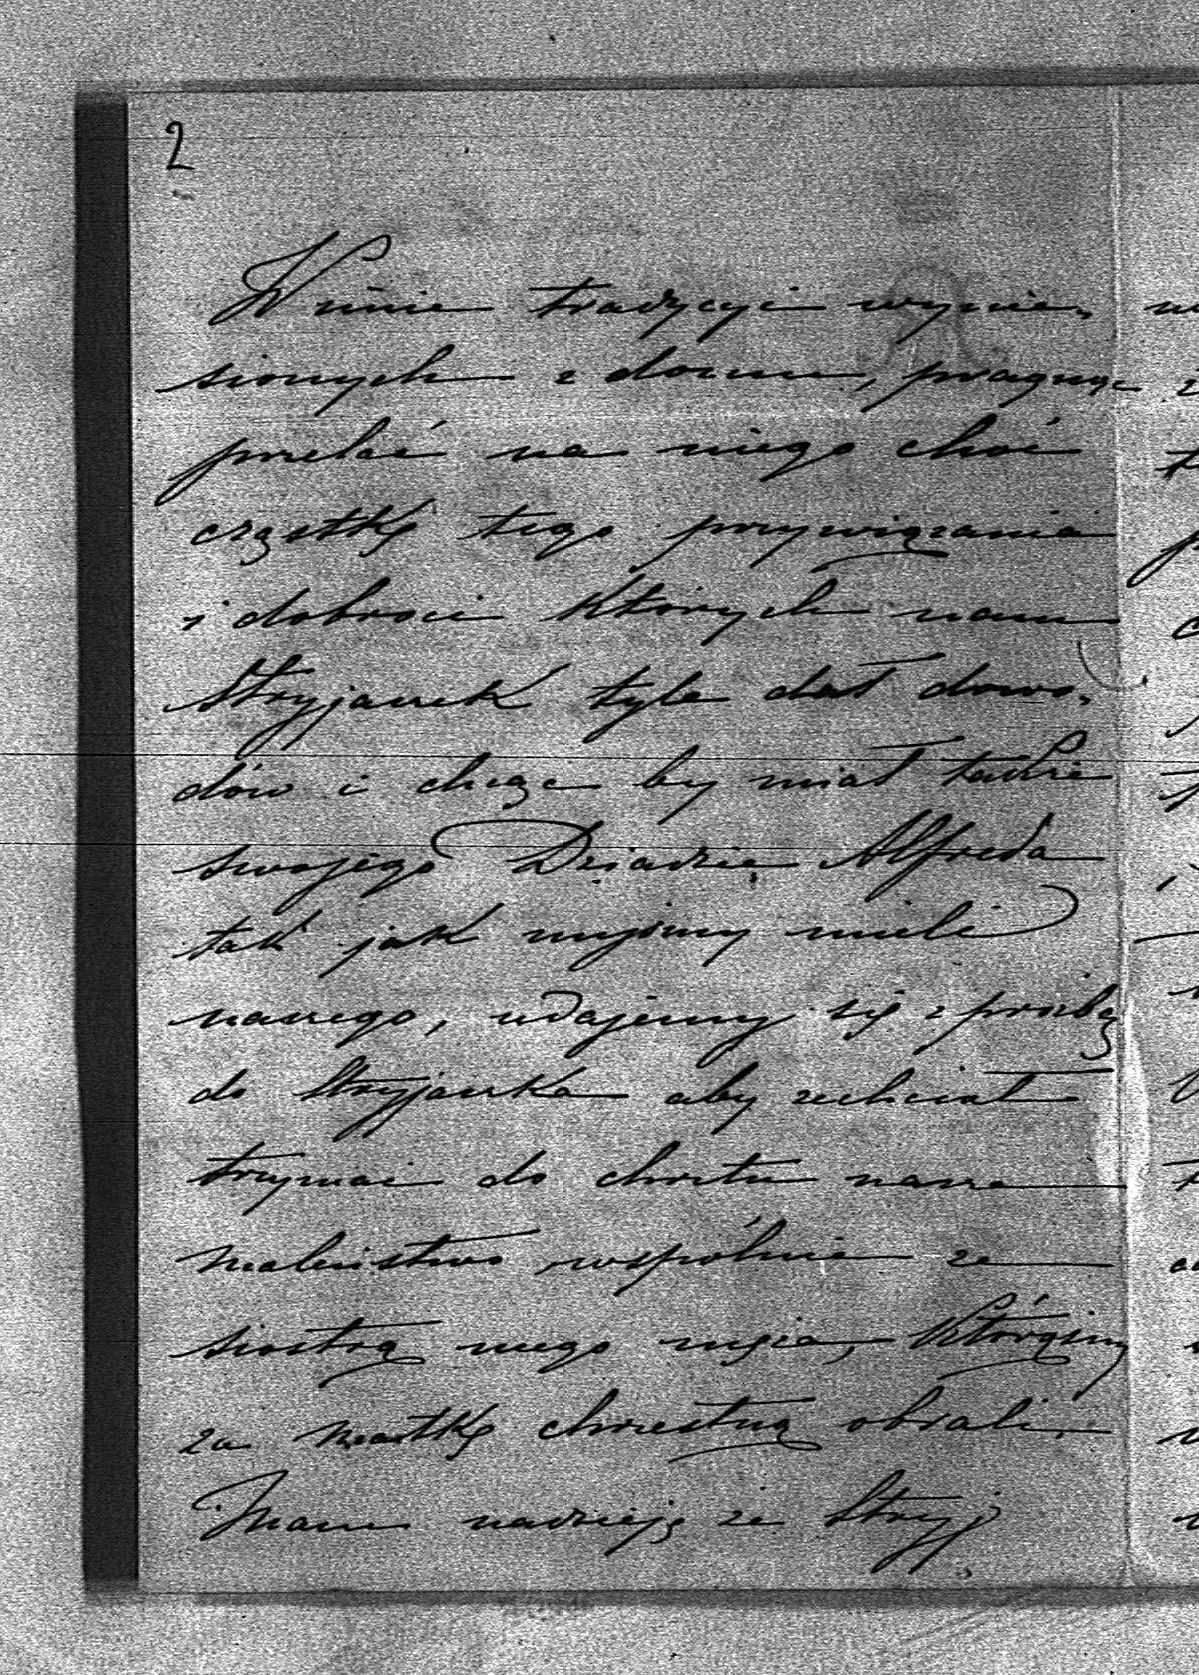 2
W imie tradycyi wynie„
sionych z domu, pragnąc
przelać na niego choć
cząstkę tego przywiązania
i dobroci których nam
Stryjaszek tyle dał dowo„
dów i chcąc by miał także
swojego Dziadzię Alfreda
tak jak myśmy mieli
naszego, udajemy się z prośbą
do Stryjaszka aby zechciał
trzymać do chrztu nasze
maleństwo wspólnie ze
siostrą mego męża, którąśmy
za matkę chrzestną obrali.
Mam nadzieję że Stryj